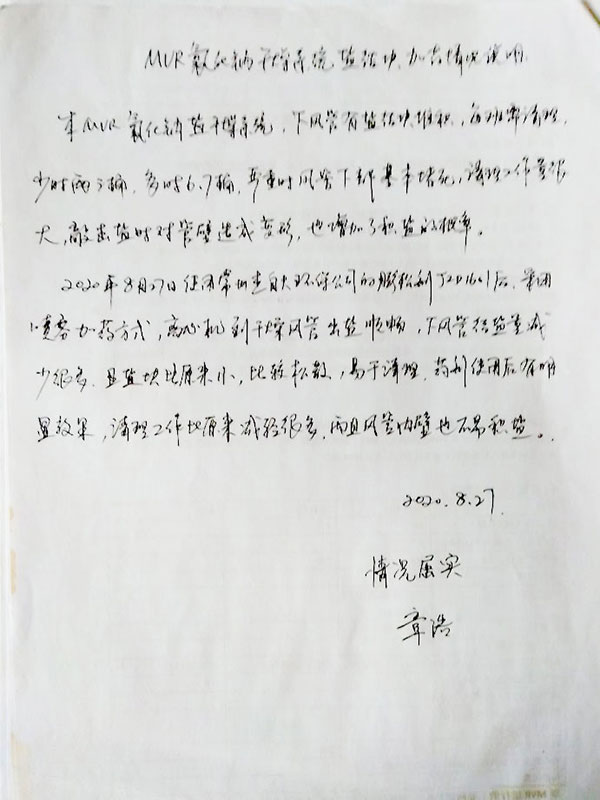 MVR氯化钠干燥系统盐结块加药情况说明
本MVR氯化钠盐干燥系统，下风管有盐结块堆积，每班需清理，
少时两三桶，多时6.7桶，严重时风管下部基本堵死，清理工作量很
大，敲击盐时对管壁造成变形，也增加了积盐的概率。
2020年8月27日使用常州 环保公司的 松剂JZD1601后，采用
喷雾加药方式，离心机到干燥风管出盐顺畅，下风管结盐量减
少很多，且盐块比原来小，比较松散，易于清理，药剂使用后有明
显效果，清理工作比原来减轻很多，而且风管内壁也不易积盐。
2020.8.27
情况属实
章浩